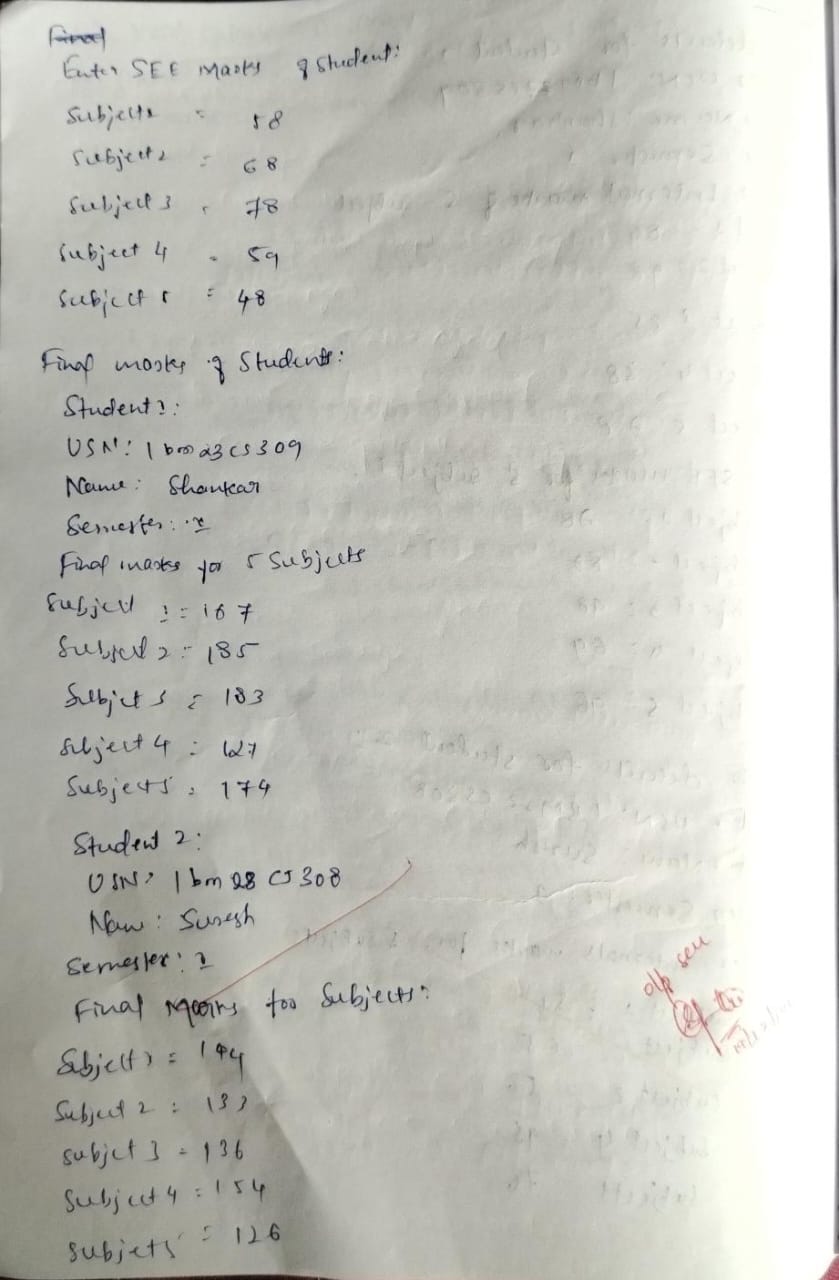 Final
Enter SEE Marks of Student:
Subject1 = 58
Subject2 = 68
Subject 3 = 78
Subject 4 = 59
Subject 5 = 48
Final marks of Students:
Student 1:
USN: 1bm23cs309
Name: Shankar
Semester:
Final marks for 5 Subjects
Subject 1 = 167
Subject 2 = 185
Subject 3 = 183
Subject 4 = 127
Subject 5 = 174
Student 2:
USN: 1bm 28 CS 308
Name: Suresh
Semester:
Final Marks for Subjects:
Subject 1 = 144
Subject 2 = 133
Subjct 3 = 136
Subject 4 = 154
Subjects = 126
o/p seen